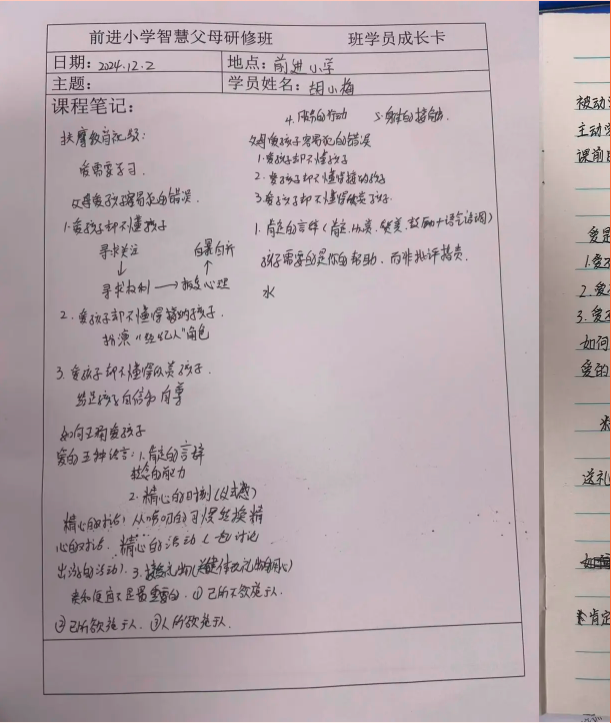 前进小学智慧父母研修班 班学员成长卡
日期：2024.12.2 地点：前进小学
主题： 学员姓名：胡小梅
课程笔记：
扶鹰教育比较：
爱需要学习．
父母爱孩子容易犯的错误．
1.爱孩子却不懂孩子
寻求关注 自暴自弃
↓ ↑
寻求权利 → 报复心理
2．爱孩子却不懂得接纳孩子．
扮演“经纪人”角色
3．爱孩子却不懂得欣赏孩子．
给足孩子自信和自尊
如何正确爱孩子
爱的五种语言：1.肯定的言辞
2．精心的时刻（仪式感）
精心的对话：从唠叨的习惯转换精
心的对话．精心的活动（一起讨论
出游的活动）．3．接受礼物
贵和便宜不是最重要的．①己所不欲施于人．
②己所欲施于人．③人所欲施于人．
4．服务的行动 5．身体的接触．
父母爱孩子容易犯的错误
1.爱孩子却不懂孩子
2．爱孩子却不懂得接纳孩子
3．爱孩子却不懂得欣赏孩子．
1．肯定的言辞（肯定、欣赏、赞美、鼓励+语气语调）
孩子需要的是你的帮助．而非批评指责．
水
被动学
主动学
课前
爱是
1.爱
2.爱
3.爱
如何
爱的
送礼
肯定